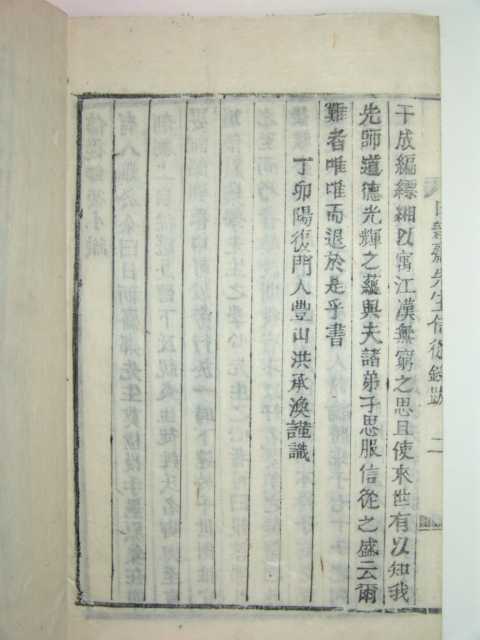 日新齋先生信從錄跋 二
干成編縹緗以寓江漢無窮之思且使來世有以知我
先師道德光輝之蘊與夫諸弟子思服信從之盛云爾
難者唯唯而退於是乎書
丁卯陽復門人豊山洪承渙謹識